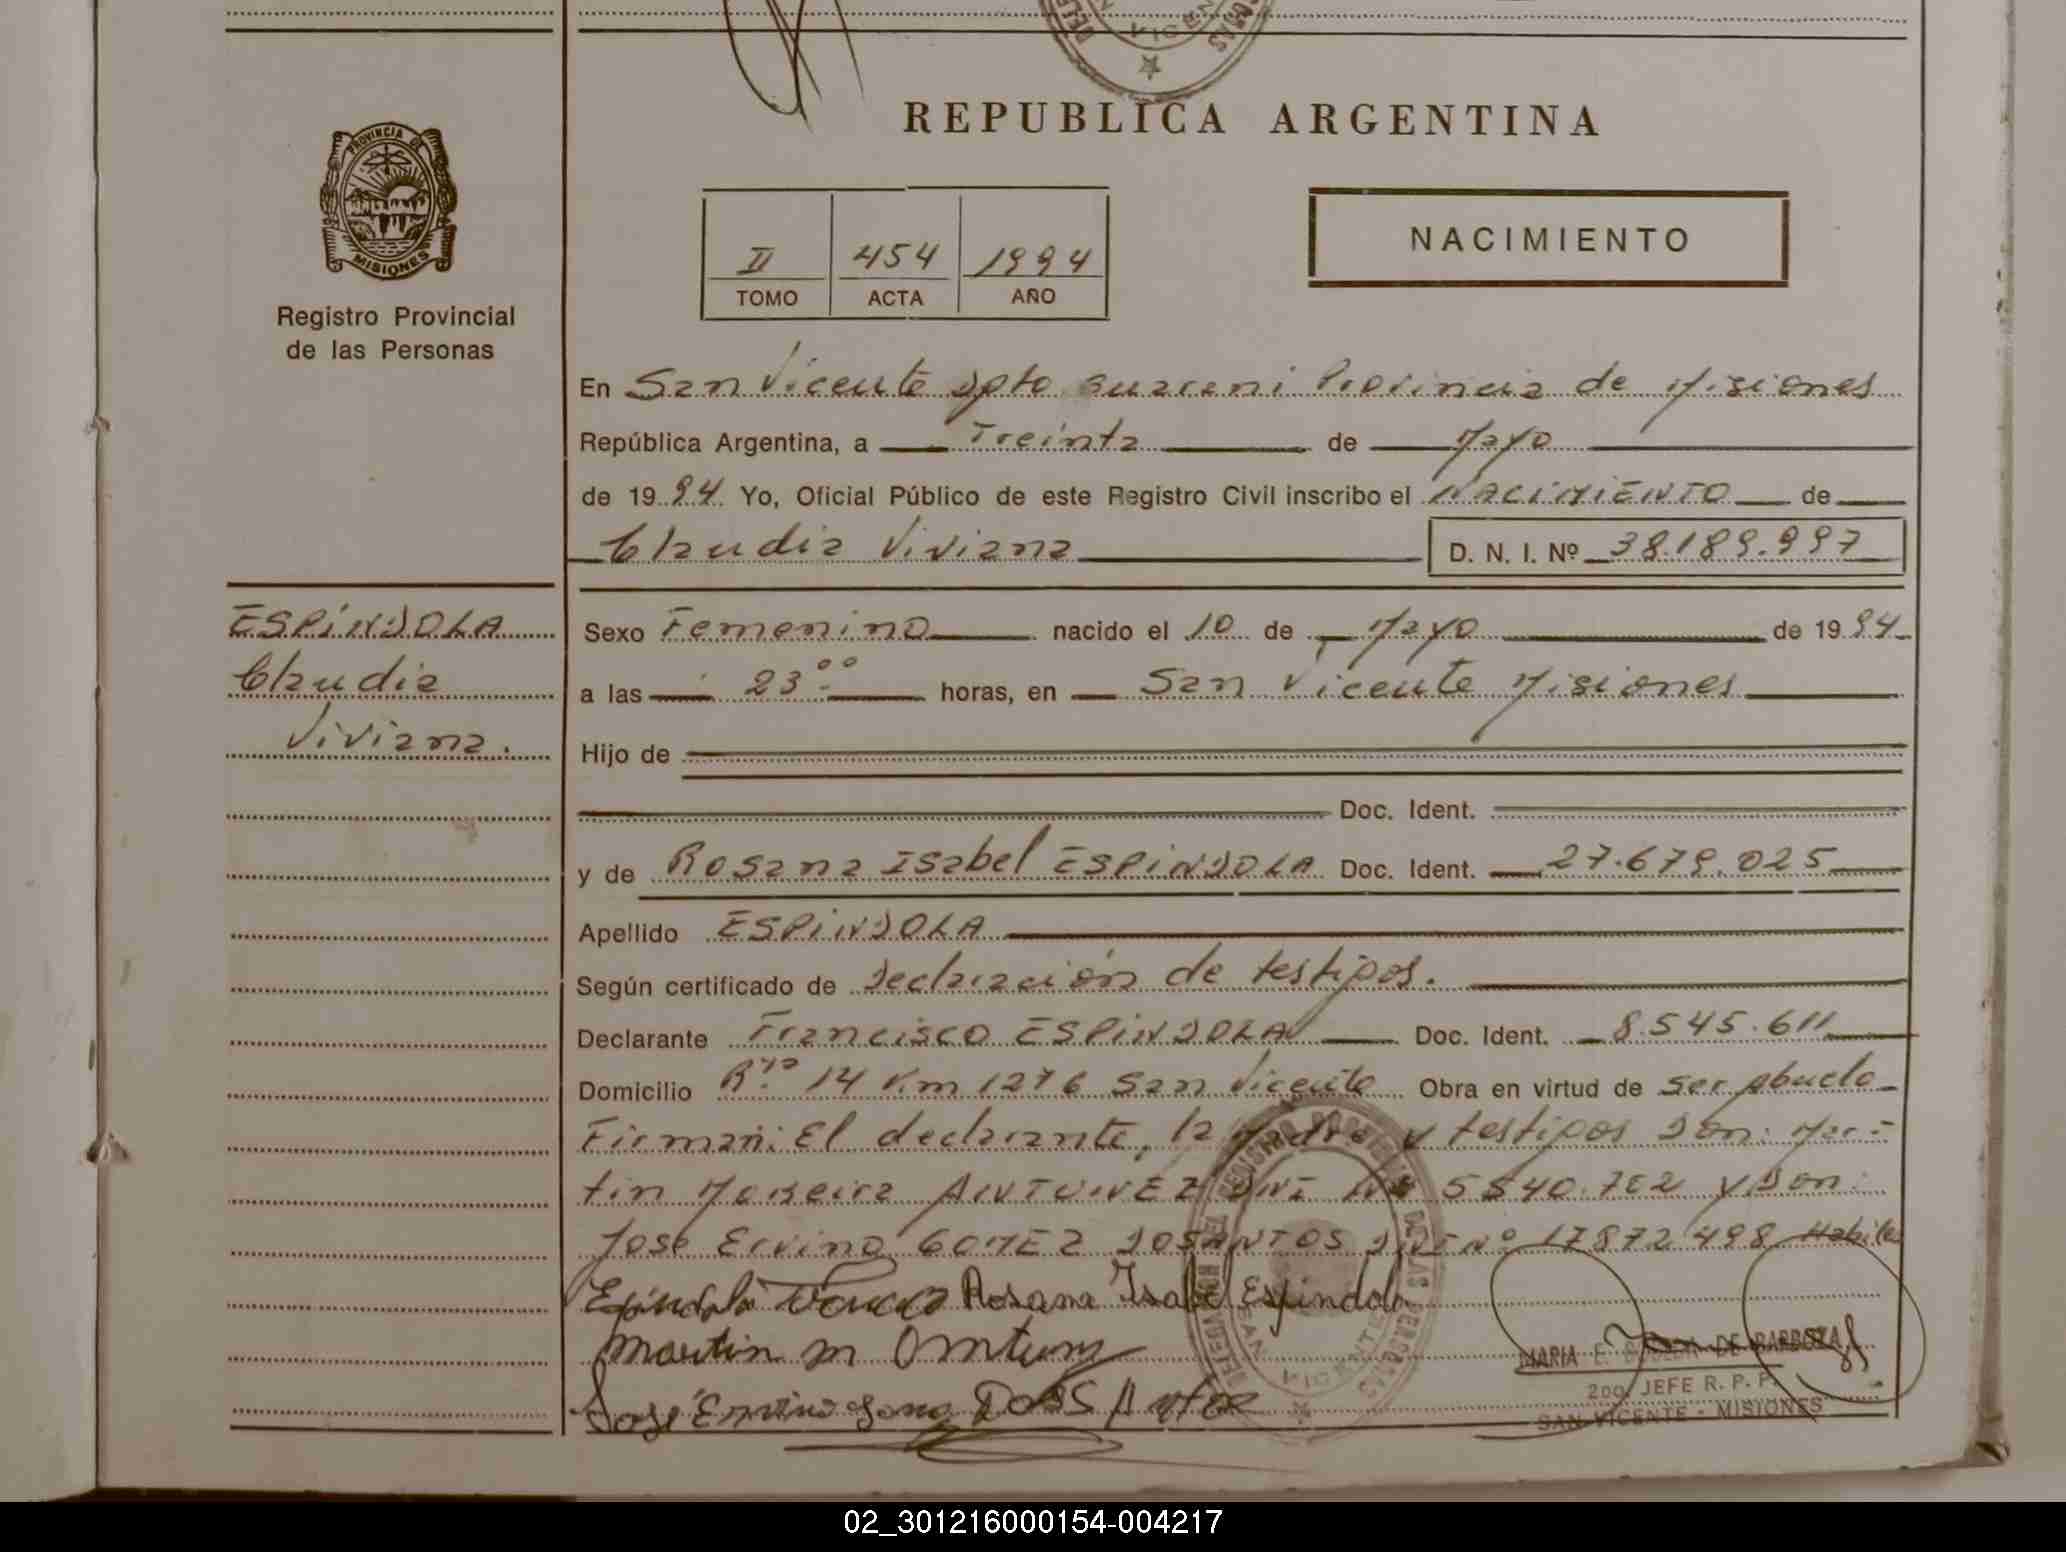 REPUBLICA ARGENTINA
PROVINCIA DE
MISIONES
Registro Provincial
de las Personas
II 454 1994
TOMO ACTA AÑO
NACIMIENTO
En San Vicente Dpto Guarani Provincia de Misiones
República Argentina, a Treinta de Mayo
de 1994 Yo, Oficial Público de este Registro Civil inscribo el NACIMIENTO de
Claudia Viviana D. N. I. Nº 38.189.997
ESPINDOLA
Claudia
Viviana.
Sexo Femenino nacido el 10 de Mayo de 1994
a las 23⁰⁰ horas, en San Vicente Misiones
Hijo de
Doc. Ident.
y de Rosana Isabel ESPINDOLA Doc. Ident. 27.679.025
Apellido ESPINDOLA
Según certificado de Declaración de testigos.
Declarante Francisco ESPINDOLA Doc. Ident. 8.545.611
Domicilio 14 Km 1276 San Vicente Obra en virtud de ser abuelo
Firman: El declarante, la Madre y testigos Don: Mar-
tin Moreira ANTUNEZ DNI Nº y Don:
José Ervino GOMEZ DOSANTOS DNI Nº 17872498 Habiles
Espindola Rosana Isabel Espindola
Martin M
José Ervino DOSSANTOS
MARIA E. DE BARBOZA
2do. JEFE R. P. P.
SAN VICENTE - MISIONES
SAN VICENTE
02_301216000154-004217